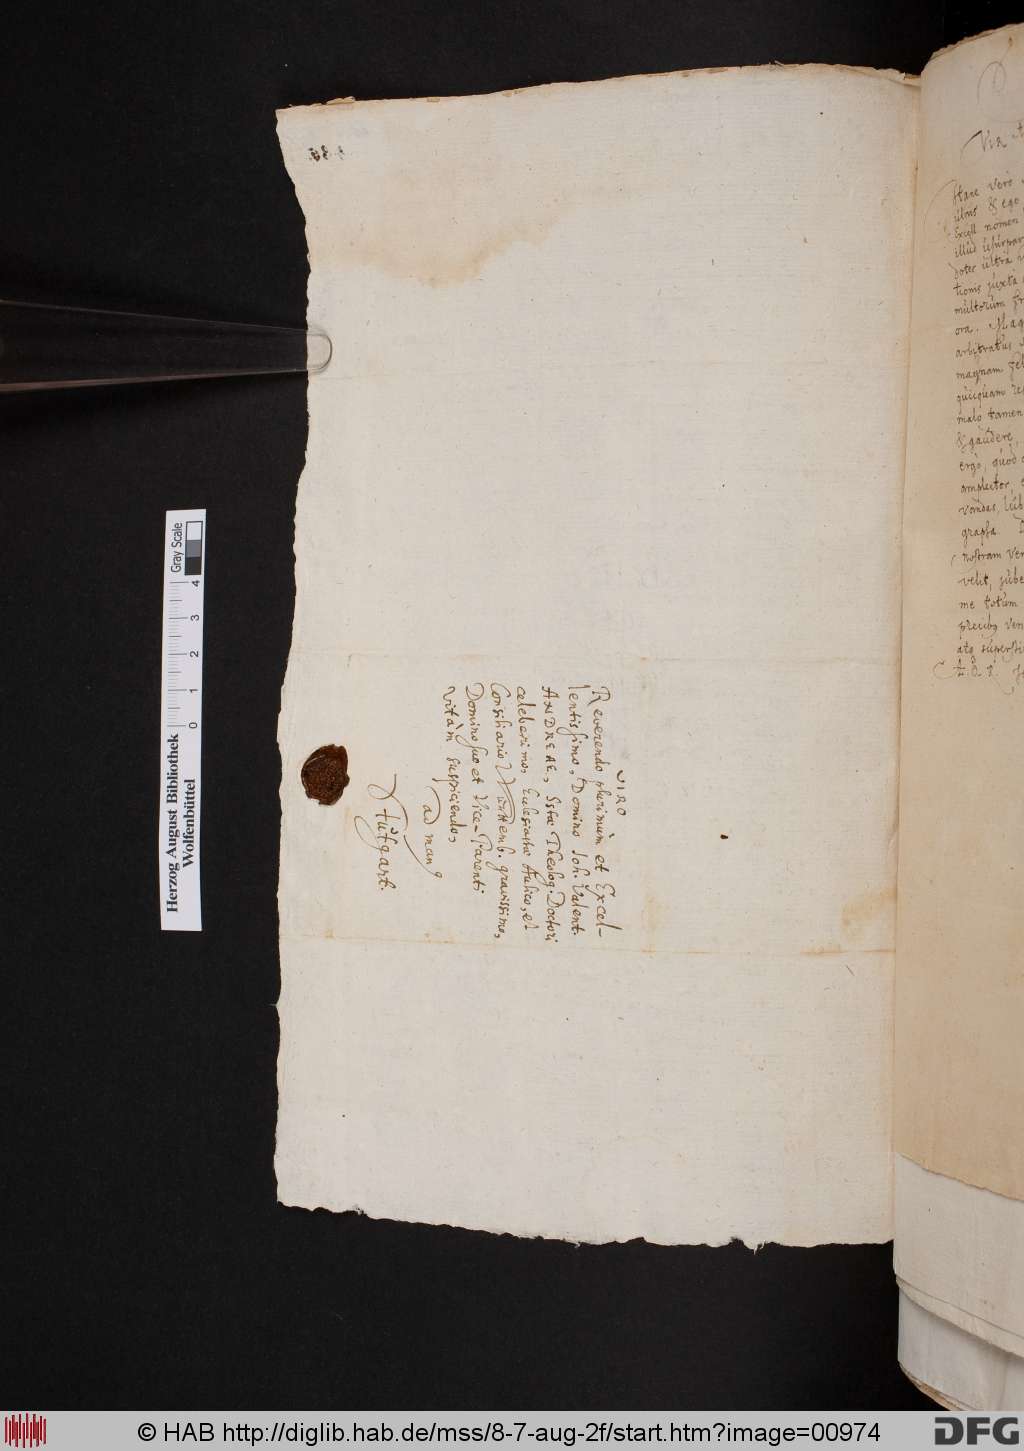 VIRO
Reverendo plurimùm et Excel-
lentissimo, Domino Joh. Valent.
ANDREAE, SSae Theolog. Doctori
celeberimo, Eclesiastae Aulico, et
Consiliario Württemb. gravissimo,
Domino suo et Vice-Parenti
vitàm suspiciendo,
ad man9
Stutgart.
Vir
Hanc verò
& ego
Excell nomen
illud usurpar
ultra
tionis juxta
multorum
ora. Mag
arbitratus
magnam
quicquam
malo tamen
& gaudere,
ergò, quòd
amplector,
grapha
nostram
velit, jube
me totum
precibus
atq supersti
Herzog August Bibliothek
Wolfenbüttel
0 1 2 3 4
Gray Scale
© HAB http://diglib.hab.de/mss/8-7-aug-2f/start.htm?image=00974
DFG